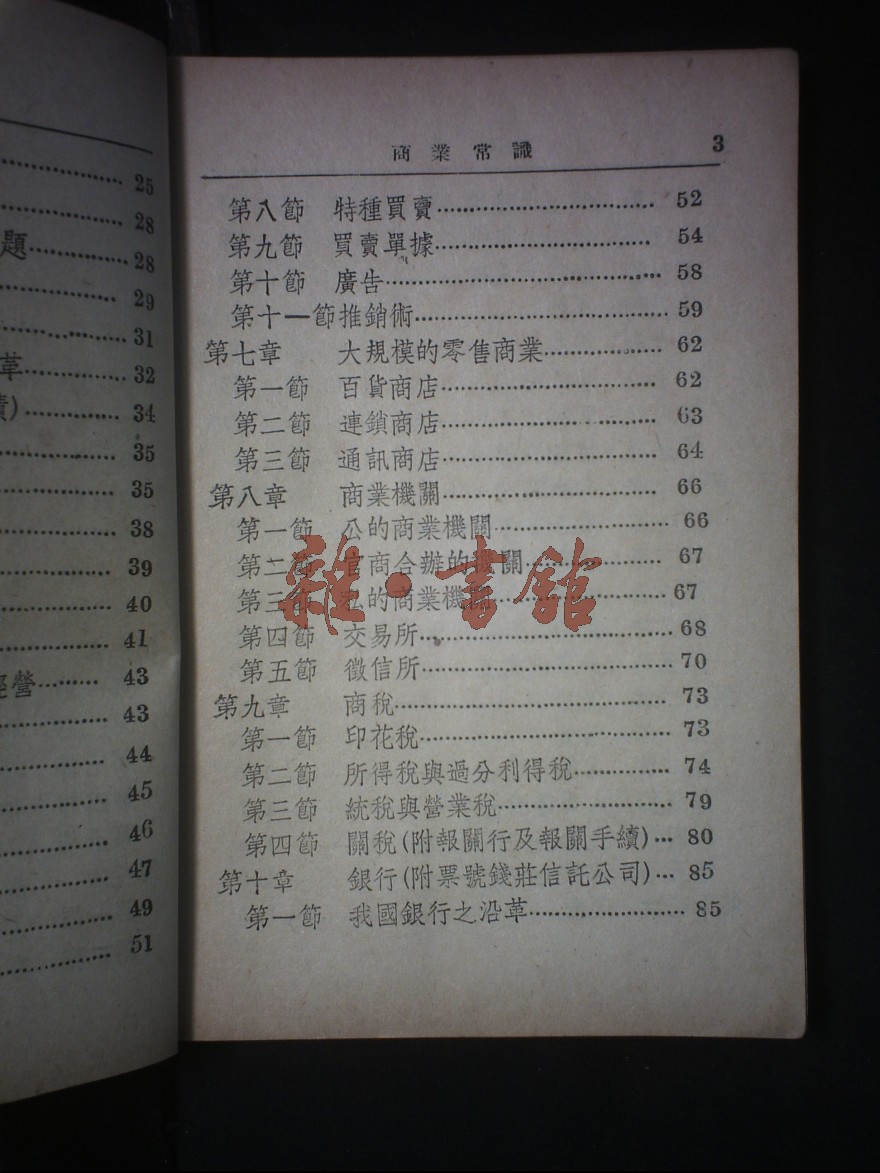 25
28
題 28
29
31
革 32
34
35
35
38
39
40
41
營 43
43
44
45
46
47
49
51
商業常識 3
第八節 特種買賣 52
第九節 買賣單據 54
第十節 廣告 58
第十一節推銷術 59
第七章 大規模的零售商業 62
第一節 百貨商店 62
第二節 連鎖商店 63
第三節 通訊商店 64
第八章 商業機關 66
第一節 公的商業機關 66
第二節 官商合辦的機關 67
第三節 私的商業機關 67
第四節 交易所 68
第五節 徵信所 70
第九章 商稅 73
第一節 印花稅 73
第二節 所得稅與過分利得稅 74
第三節 統稅與營業稅 79
第四節 關稅(附報關行及報關手續) 80
第十章 銀行(附票號錢莊信託公司) 85
第一節 我國銀行之沿革 85
雜·書館